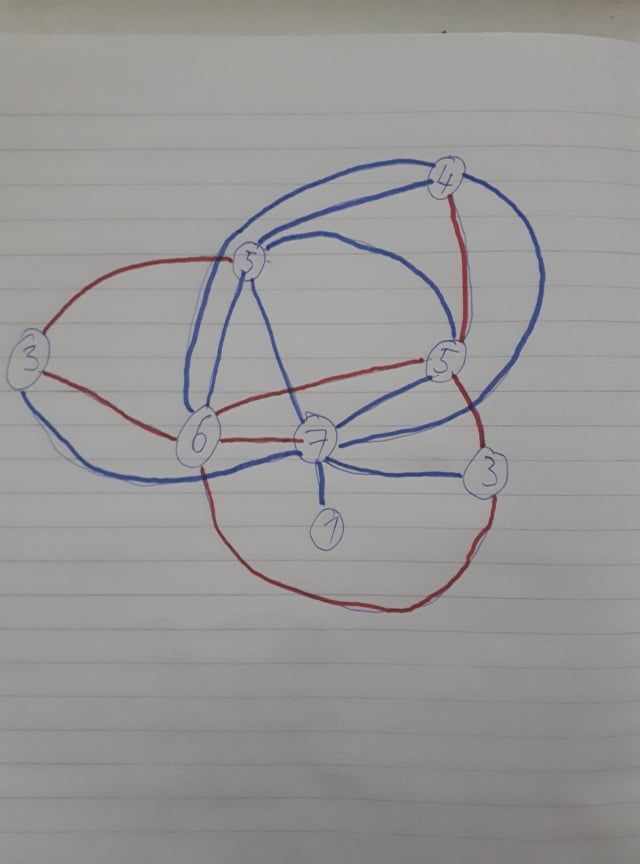 4
5
3
5
6
7
3
1